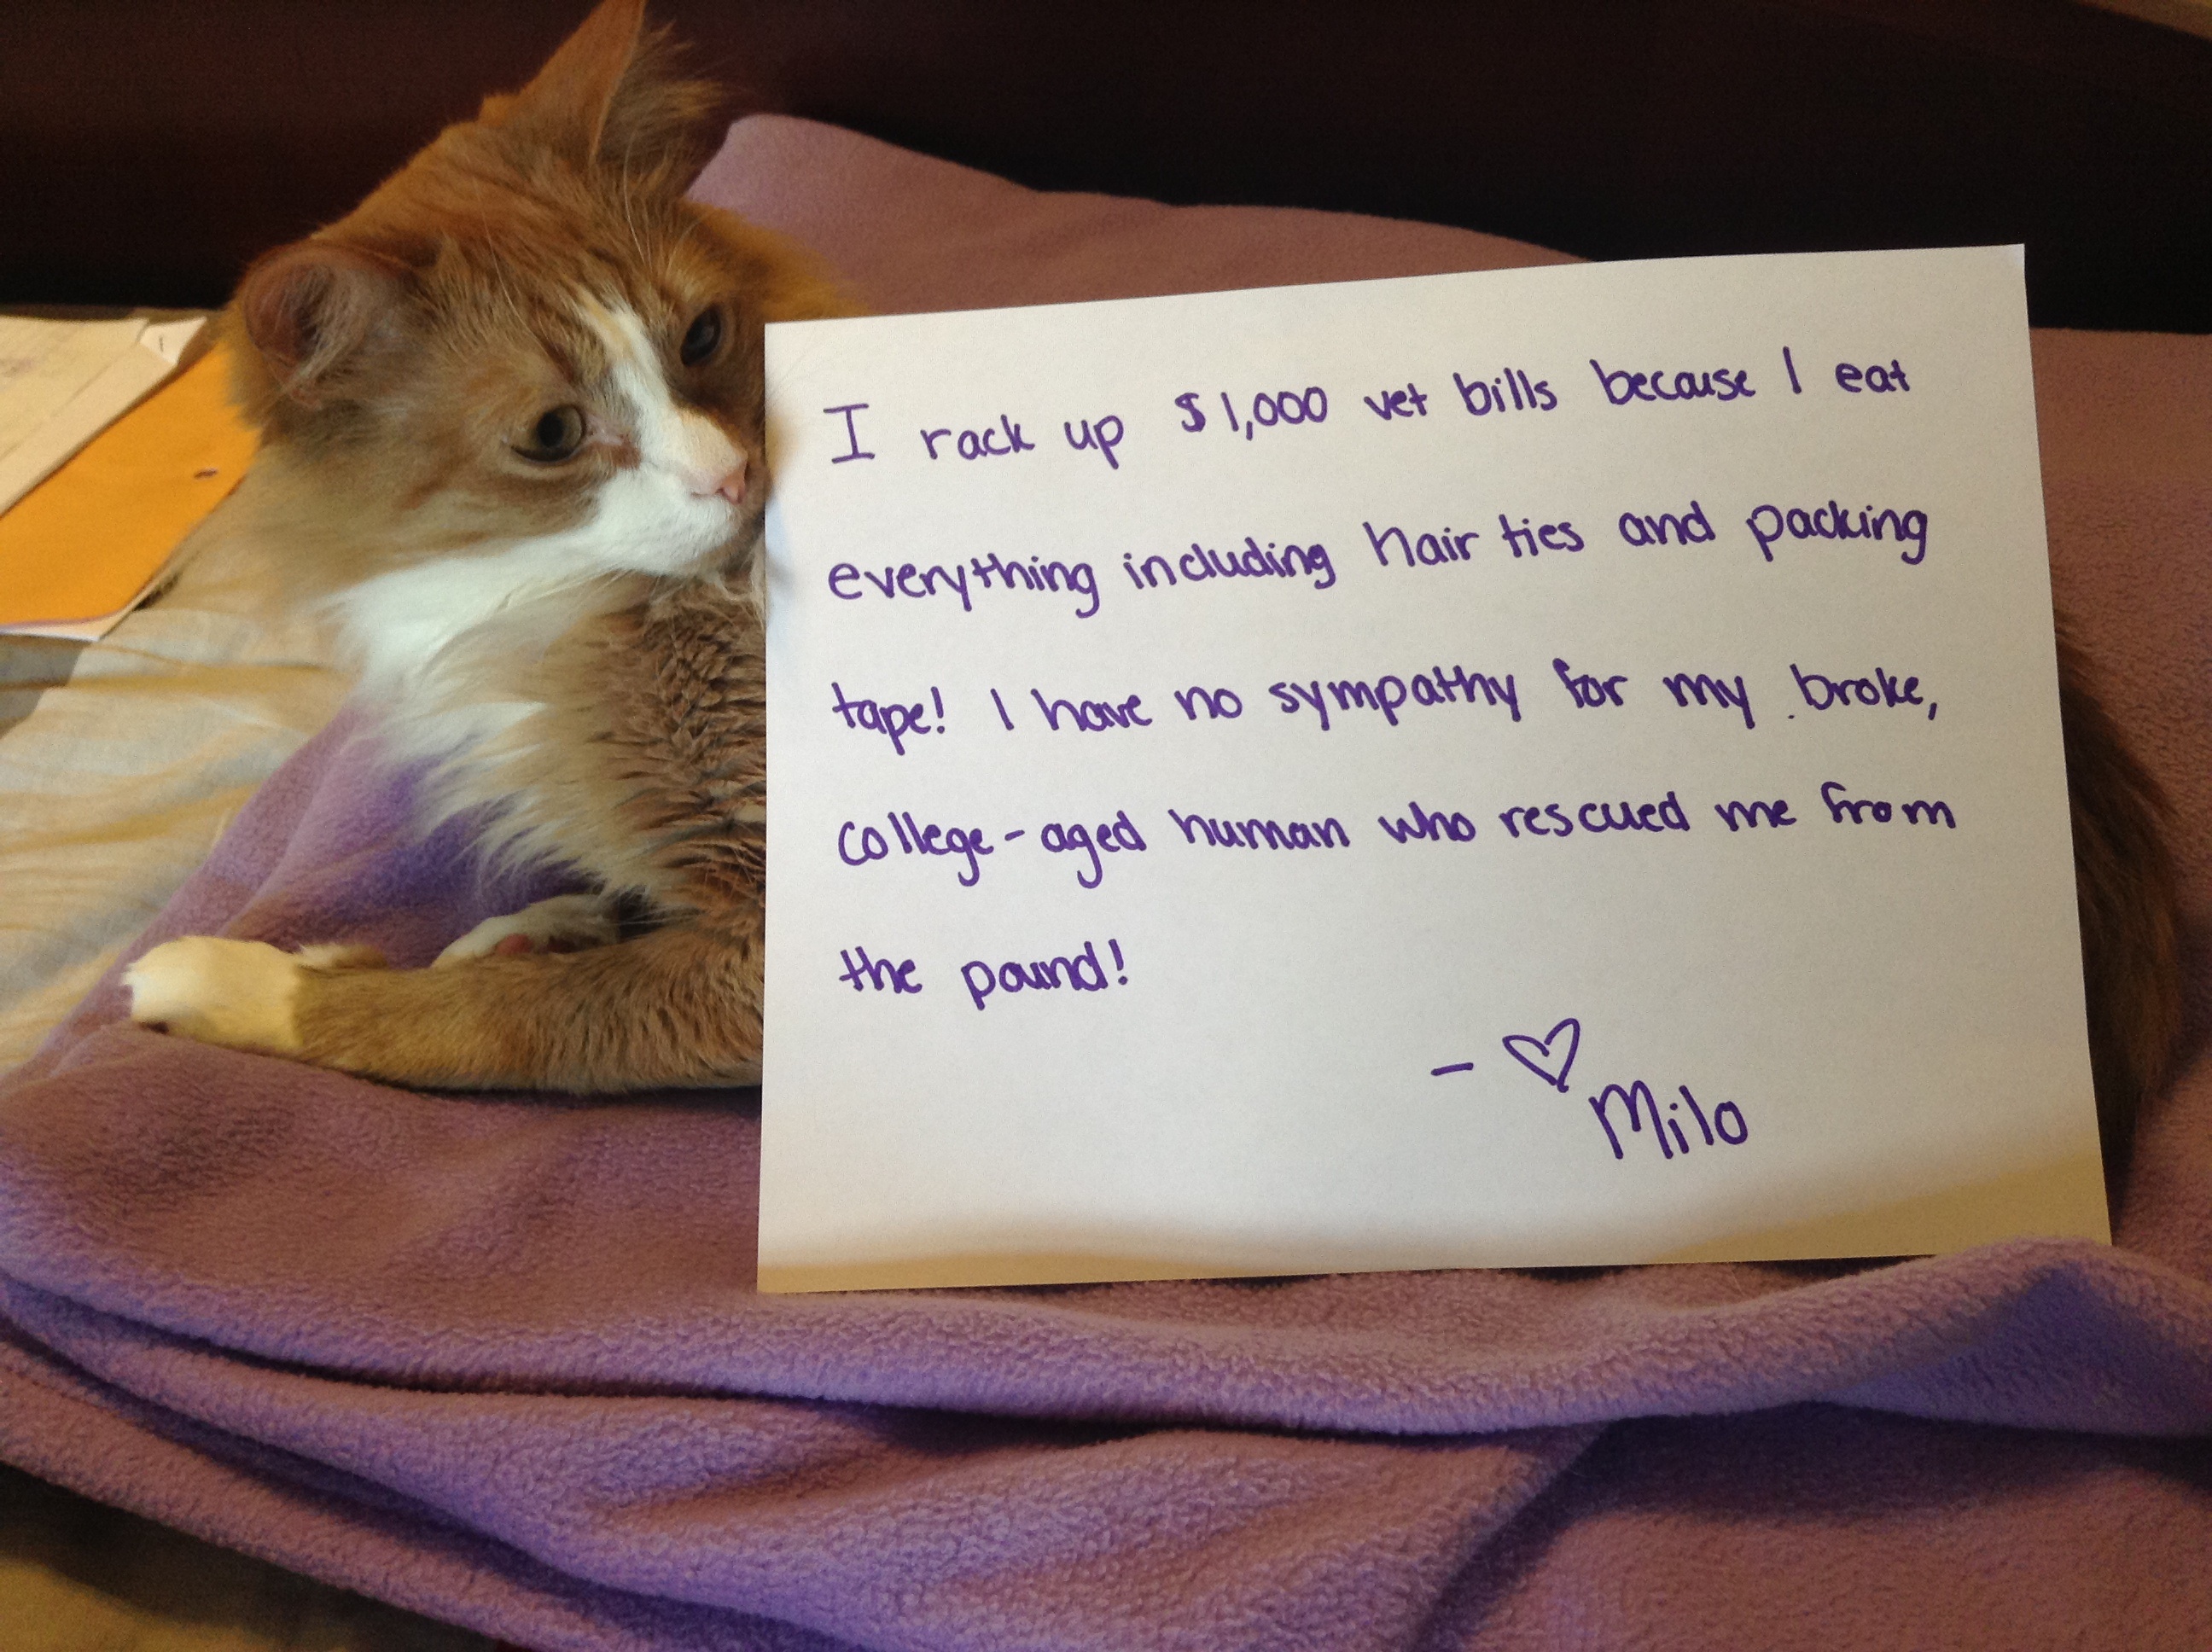 I rack up $1,000 vet bills because I eat
everything including hair ties and packing
tape! I have no sympathy for my broke,
college-aged human who rescued me from
the pound!
- ♡
Milo